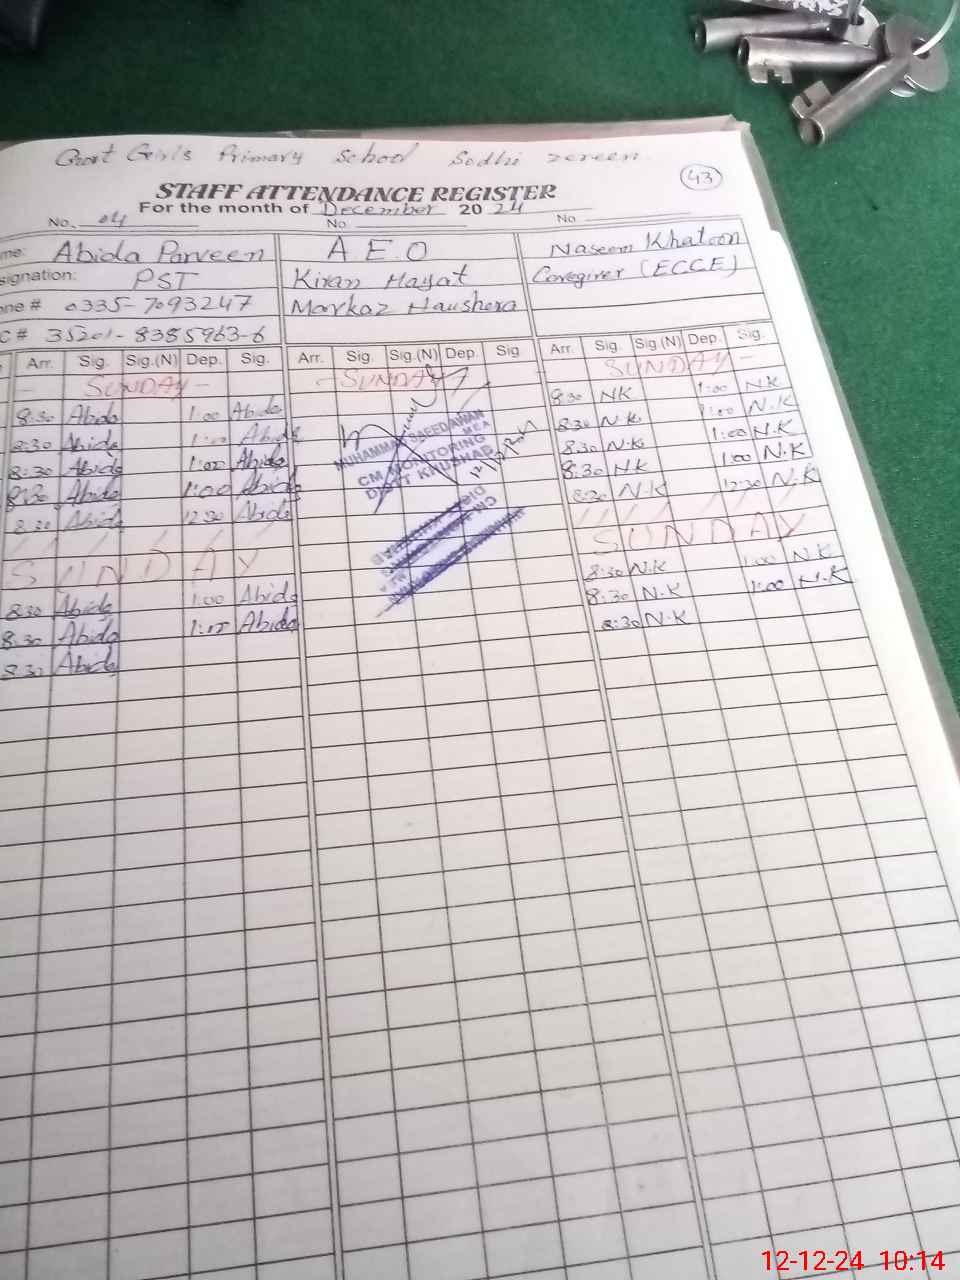 Govt Girls Primary School Sodhi zereen
43
STAFF ATTENDANCE REGISTER
For the month of December 2024
No. 04 No No
me: Abida Parveen A E.O Naseem Khatoon
signation: PST Kiran Hayat Caregiver (ECCE)
one # 0335-7093247 Markaz Naushera
C # 35201-8385963-6
Arr. Sig. Sig.(N) Dep. Sig. Arr. Sig. Sig.(N) Dep. Sig Arr. Sig. Sig.(N) Dep. Sig.
- SUNDAY - - SUNDAY - SUNDAY -
8:30 Abida 1:00 Abida 8:30 NK 1:00 NK
8:30 Abida 1:00 Abida 8:30 N.K 1:00 N.K
8:30 Abida 1:00 Abida 8:30 N.K 1:00 N.K
8:30 Abida 1:00 Abida 8:30 NK 1:00 N.K
8:30 Abida 12:30 Abida 8:30 N.K 12:30 N.K
MUHAMMAD SAEED AWAN
MEA
CM MONITORING
DISTT KHUSHAB
SUNDAY SUNDAY
8:30 Abida 1:00 Abida 8:30 N.K 1:00 N.K
8:30 Abida 1:00 Abida 8:30 N.K 1:00 N.K
8:30 Abida 8:30 N.K
12-12-24 10:14